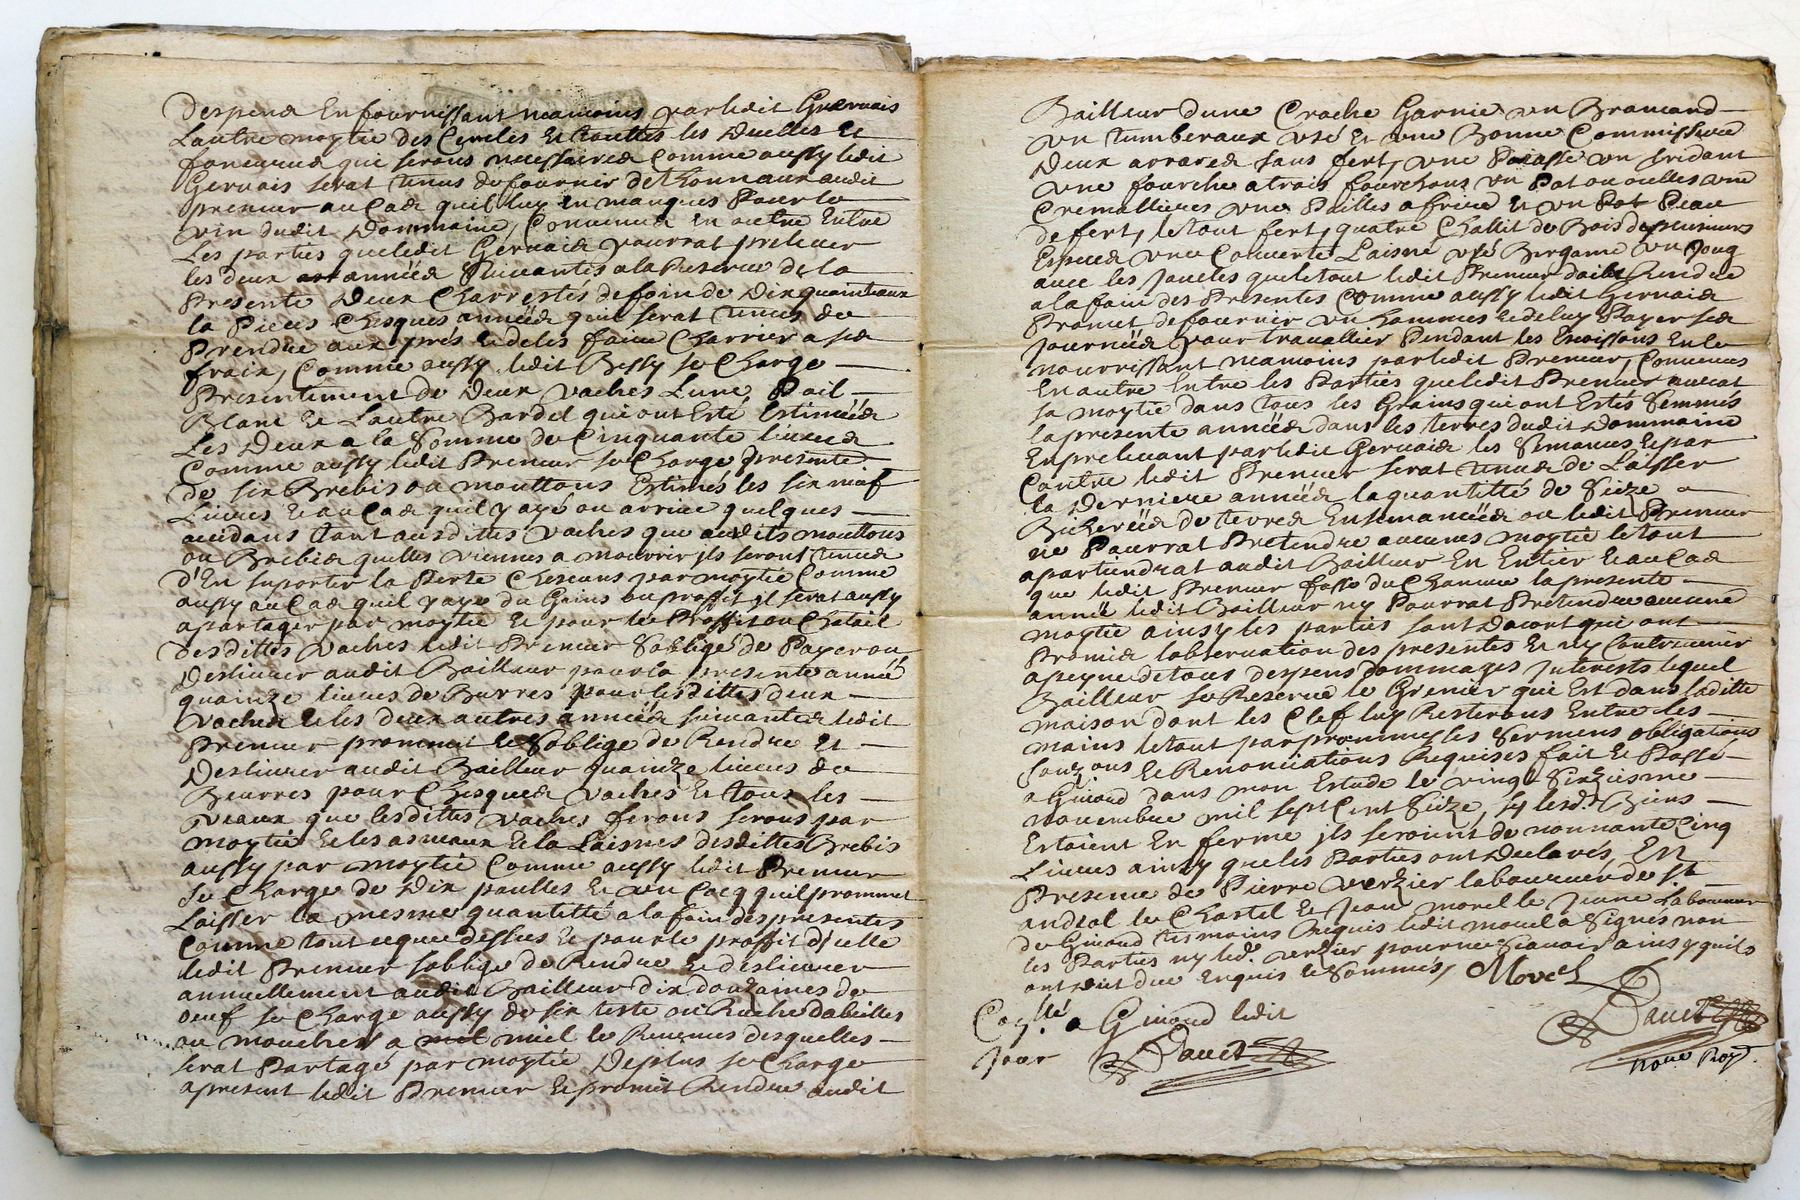 despens En fournissant neamoins par ledit Gervais
Lautre moytié des Cercles Et touttes les Duelles Et
foncures qui seront necessaires Comme aussy ledit
Gervais serat tenus de fournir de thonneaux audit
preneur au Cas quil luy en manques Pour le
vin dudit Dommaine, Convenus en outre Entre
Les parties que ledit Gervais pourrat prelever
les deux années suivantes a la Reserve de la
Presente Deux Charrestés de foin de Dix quointaux
la Pieces Chesques années quil serat tenus de
Prendre aux prés Et de les faire Charrier a ses
fraix, Comme aussy ledit Bessy se Charge
Presentement de Deux vaches Lune Poil
Blanc Et Lautre Bardel qui ont Esté Estimées
Les Deux a la Somme de Cinquante livres
Comme aussy ledit Preneur se Charge presente
de six Brebis ou mouttons Estimés les six neuf
Livres Et au Cas quil y ayé ou arrive quelques
accidans tant ausdittes vaches que ausdits mouttons
ou Brebis quelles viennes a mourrir ils seront tenus
d'En suporter la Perte Chescuns par moytié Comme
aussy au Cas quil y aye du Gains ou proffit il serat aussy
a partager par moytié Et pour le Proffit ou Chatail
desdittes vaches ledit Preneur soblige de Payer ou
Deslivrer audit Bailleur pour la presente année
quainze livres de Burres pour lesdittes deux
vaches Et les deux autres années suivantes ledit
Preneur prommet Et soblige de Rendre Et
Deslivrer audit Bailleur quainze livres de
Beurres pour Chesques vaches Et tous les
veaux que lesdittes vaches ferons serons par
moytié Et les agneaux Et la Laisnes desdittes Brebis
aussy par moytié Comme aussy ledit Preneur
se Charge de Dix poulles Et un Cocq quil prommet
Laisser la mesme quantitté a la fain des presentes
Comme tout ce que dessus Et pour le proffit d'icelle
ledit Preneur soblige de Rendre Et deslivrer
annuellement audit Bailleur dix douzaines de
oeuf se Charge aussy de six teste ou Ruche dabeilles
ou mouches a miel le Revenus desquelles
serat Partagé par moytié Deplus se Charge
apresent ledit Preneur Et promet Rendre audit
Bailleur dune Crache Garnie un Bramard
un tumberaux usé Et une Bonne
Deux arrares sans fert, une un
une fourche a trois fourchons un Pot ou oulles une
Cremallieres une Pailles a frire Et un Pot Peau
de fert, le tout fert, quatre Chalit de Bois de plusieurs
Especes une Couverte Laisne usé Bergame un Joug
avec les Jouctes que le tout ledit Preneur doibt Rendre
a la fain des Presentes Comme aussy ledit Gervais
Promet de fournir un hommes Et de luy Payer ses
Journées pour travallier Pendant les moissons En le
nourrissant neamoins par ledit Preneur, Convenus
En outre Entre les Parties que ledit Preneur aurat
sa moytié dans tous les Grains qui ont Estés semmés
la presente années dans les terres dudit Dommaine
En prelevant par ledit Gervais les semances Et par
Contre ledit Preneur serat tenus de Laisser
la Derniere années la quantitté de Seize
Bicherées de terres Ensemancées ou ledit Preneur
ne Pourrat Pretendre aucunes moytié le tout
apartiendrat audit Bailleur En Entier Et au Cas
que ledit Preneur fasse du Chanvre la presente
année ledit Bailleur ny Pourrat Pretendre aucune
moytié ainsy les parties sont dacort qui ont
Promis lobservation des presentes Et ny Contrevenir
a peyne de tous despens dommages Interests lequel
Bailleur se Reserve le Grenier que Est dans laditte
maison dont les Clef luy Resterons Entre les
mains le tout par prommesses sermens obligations
Et Renonciations Requises fait Et Passé
a Ginond dans mon Estude le vingt
novembre mil sept Cent Seize, sy lesd. Biens
Estoient En ferme ils seroient de nonnante Cinq
Livres ainsy que les Parties ont Declarés En
Presence de Pierre verzier laboureur de St
andeol le Chastel Et Jean morel le Jeune Laboureur
de Ginond tesmoins Requis ledit morel a Signés non
les Parties ny led. verzier pour ne scavoir ainsy quils
ont dit due Enquis Et Sommés, Morel
Con.llé a Ginond ledit
Jour